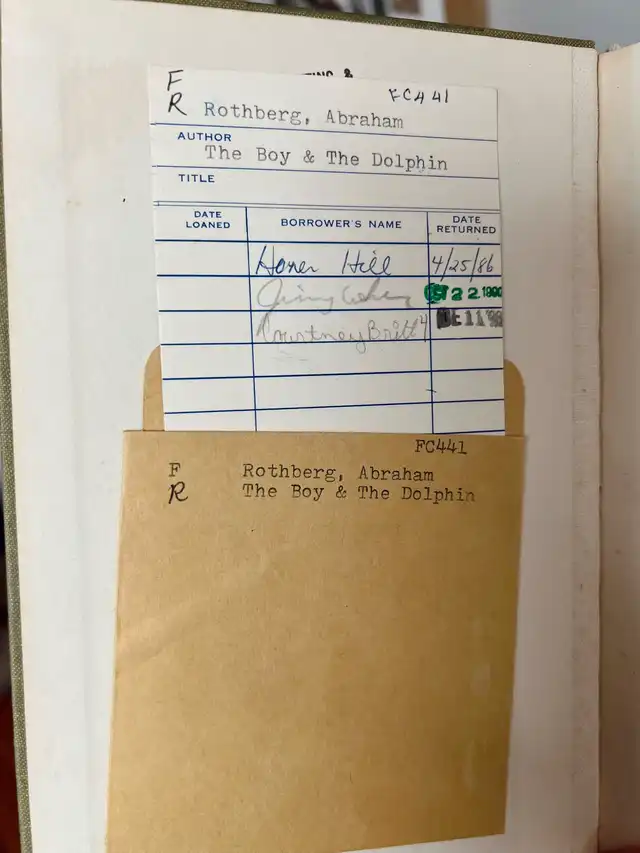 F
FC441
R Rothberg, Abraham
AUTHOR
The Boy & The Dolphin
TITLE
DATE LOANED BORROWER'S NAME DATE RETURNED
Hill 4/25/86
22
Courtney Britt 4 DE 11
FC441
F Rothberg, Abraham
R The Boy & The Dolphin